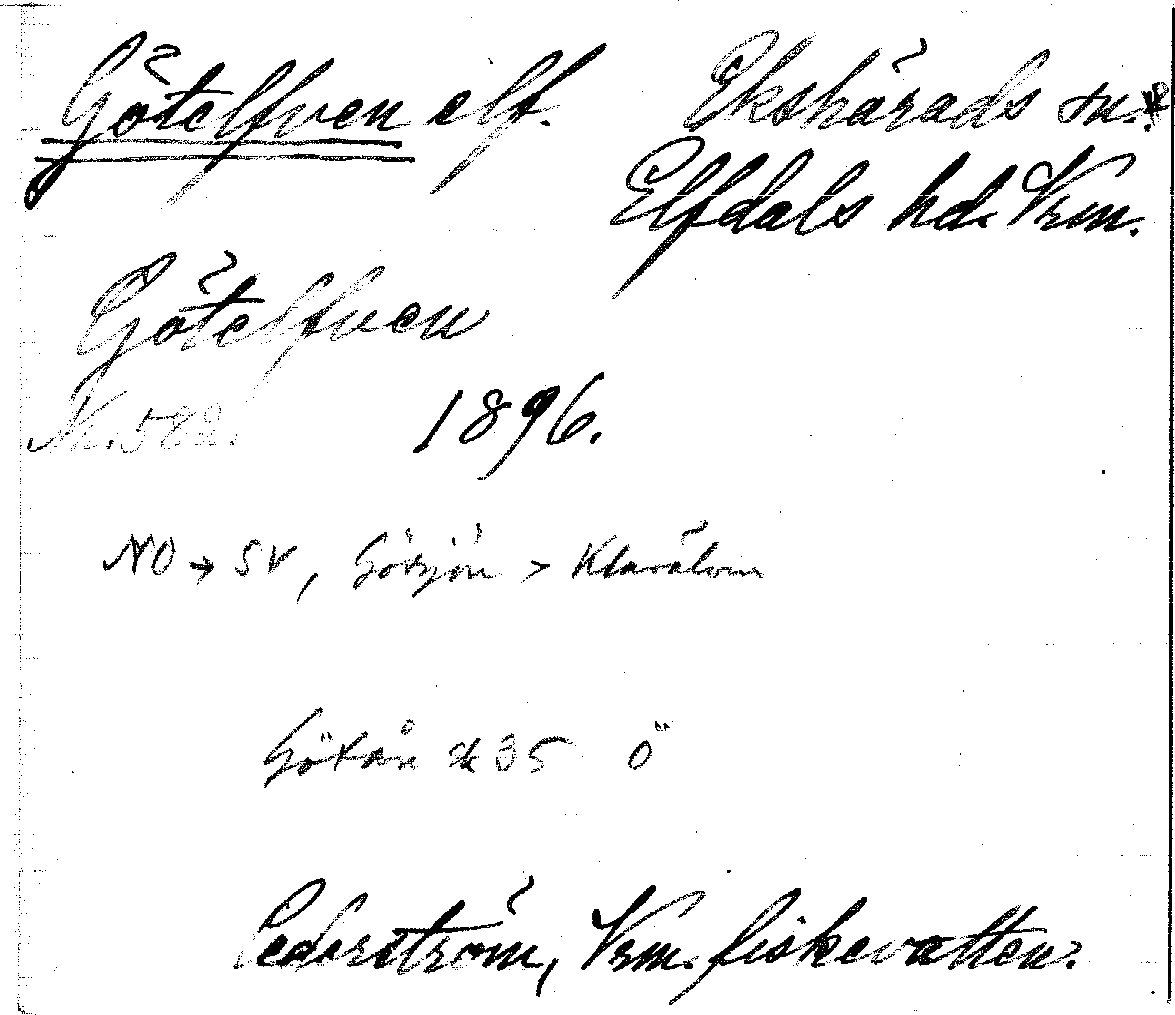 Götelfven elf. Ekshärads sn.
Elfdals hd. Vrm.
Götelfven
Nr. 582. 1896.
NO → SV, Götsjön > Klarälven
Götån 35 Ö
Cederström, Vrm. fiskevatten.